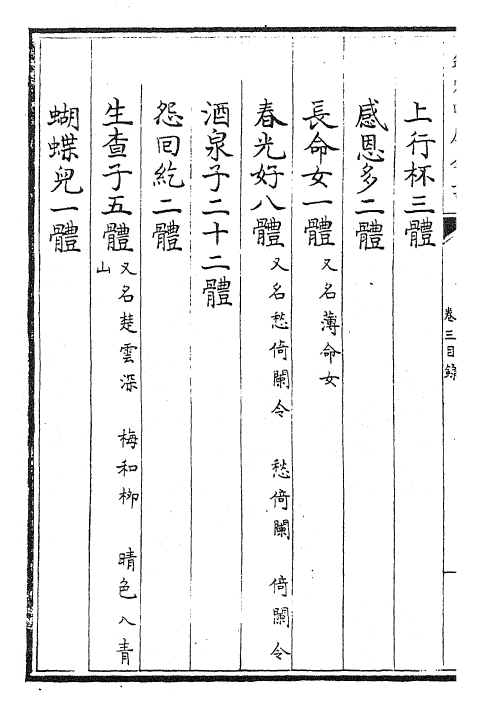 卷三目錄
上行杯三體
感恩多二體
長命女一體 又名薄命女
春光好八體 又名愁倚闌令 愁倚闌 倚闌令
酒泉子二十二體
怨回紇二體
生查子五體 又名楚雲深 梅和柳 晴色入青
山
蝴蝶兒一體